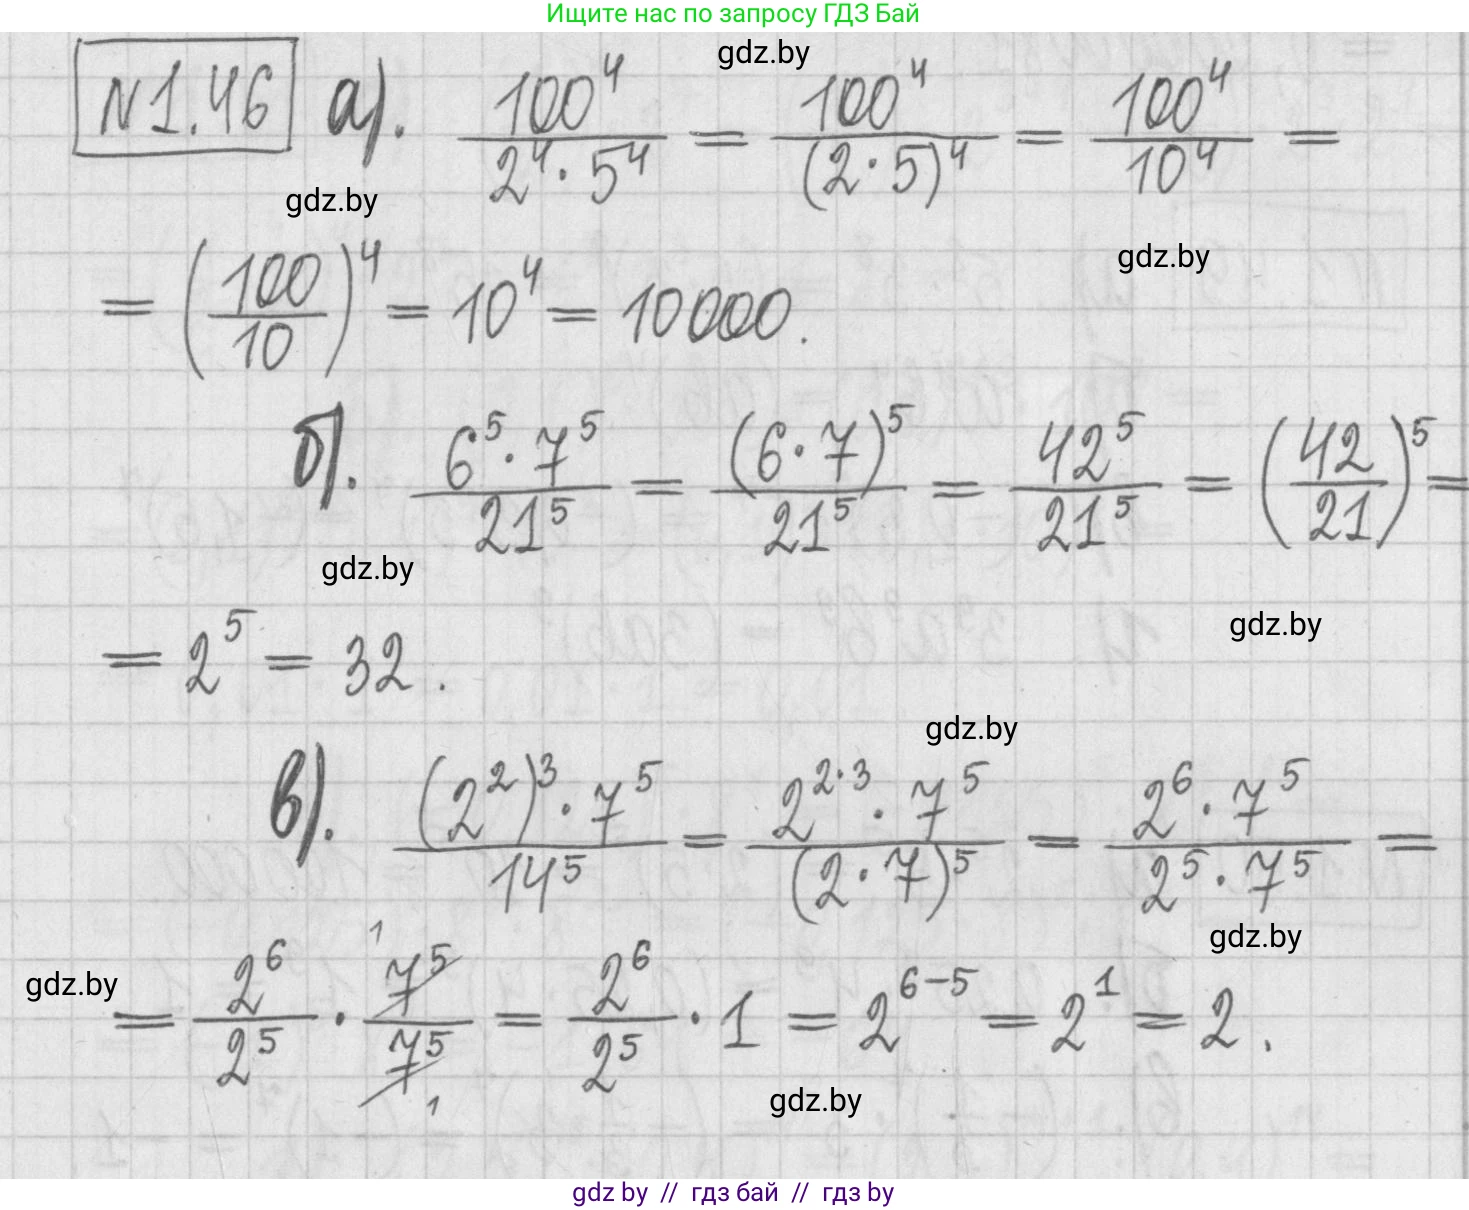 Ищите нас по запросу ГДЗ Бай
gdz.by
N1.46 а). 100^4 / (2^4 · 5^4) = 100^4 / (2·5)^4 = 100^4 / 10^4 =
gdz.by
gdz.by
= (100/10)^4 = 10^4 = 10000.
б). (6^5 · 7^5) / 21^5 = (6·7)^5 / 21^5 = 42^5 / 21^5 = (42/21)^5 =
gdz.by
gdz.by
= 2^5 = 32.
gdz.by
в). ((2^2)^3 · 7^5) / 14^5 = (2^(2·3) · 7^5) / (2·7)^5 = (2^6 · 7^5) / (2^5 · 7^5) =
gdz.by
gdz.by
= 2^6 / 2^5 · 7^5 1 / 7^5 1 = 2^6 / 2^5 · 1 = 2^(6-5) = 2^1 = 2.
gdz.by
gdz by // гдз бай // гдз by